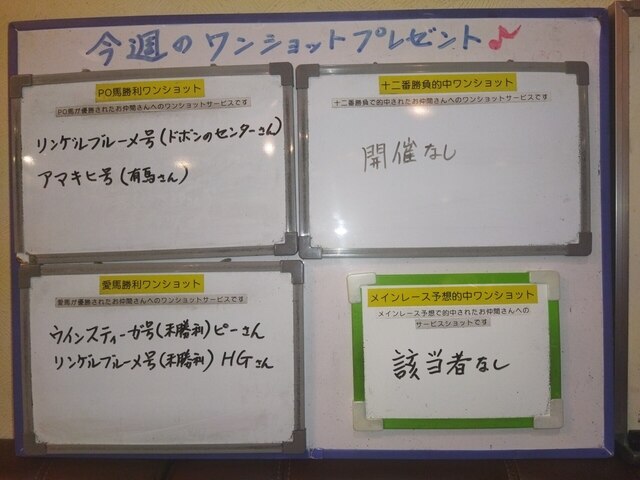 今週のワンショットプレゼント
PO馬勝利ワンショット
PO馬が優勝されたお仲間さんへのワンショットサービスです
リンゲルブルーメ号(ドボンのセンターさん)
アマキヒ号(有馬さん)
十二番勝負的中ワンショット
十二番勝負で的中されたお仲間さんへのワンショットサービスです
開催なし
愛馬勝利ワンショット
愛馬が優勝されたお仲間さんへのワンショットサービスです
ウインスティーガ号(未勝利)ピーさん
リンゲルブルーメ号(未勝利)HGさん
メインレース予想的中ワンショット
メインレース予想で的中されたお仲間さんへの
サービスショットです
該当者なし